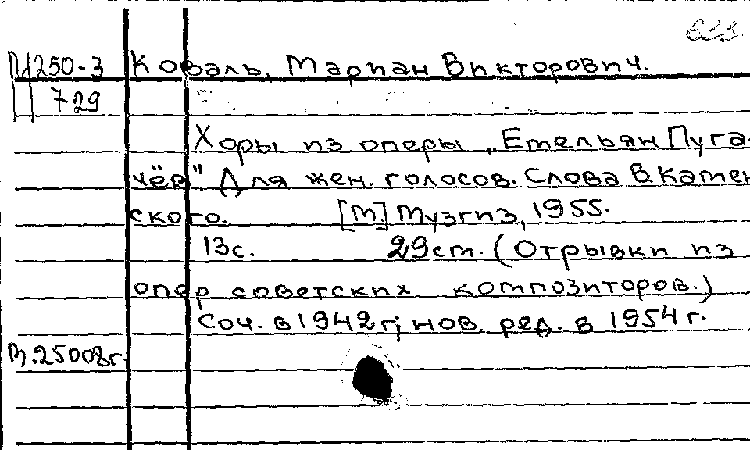 П1250-3 Коваль, Мариан Викторович.
729
Хоры из оперы „Емельян Пуга-
чёв" Для жен. голосов. Слова В. Камен
ского. [М.] Музгиз, 1955.
13с. 29см. (Отрывки из
опер советских композиторов.)
Соч. в 1942 г; нов. ред. в 1954 г.